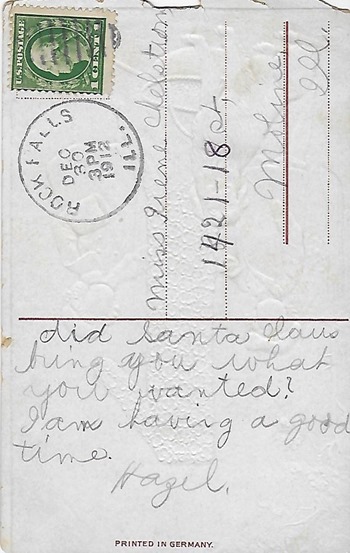 U.S. POSTAGE
1 CENT 1
ROCK FALLS
DEC
30
3 PM
1912
ILL.
Miss Irene
1421-18 St,
Moline
Ill.
did Santa Claus
bring you what
you wanted?
I am having a good
time.
Hazel.
PRINTED IN GERMANY.